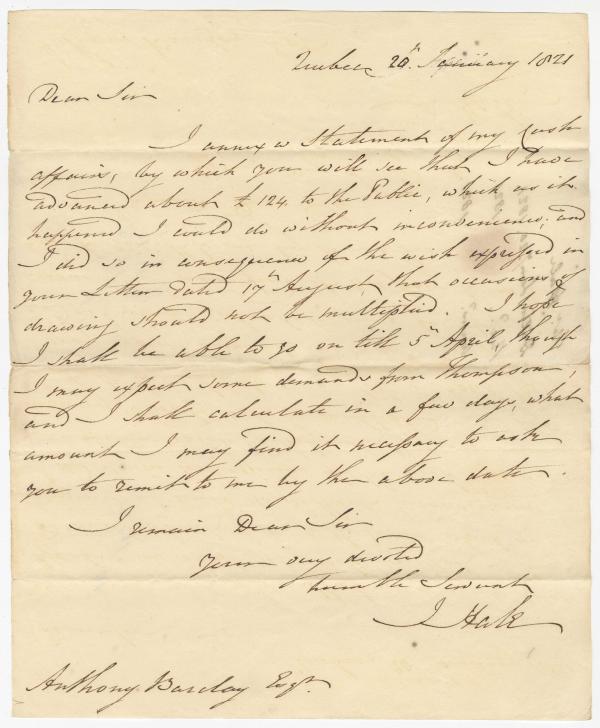 Quebec 20th January 1821
Dear Sir
I annex a Statement of my Cash
affairs, by which you will see that I have
advanced about £ 124. to the Public, which as it
happened I could do without inconvenience, and
I did so in consequence of the wish expressed in
your Letter dated 17th August, that occasions of
drawing should not be multiplied. I hope
I shall be able to go on till 5th April, though
I may expect some demands from Thompson,
and I shall calculate in a few days, what
amount I may find it necessary to ask
you to remit to me by the above date.
I remain Dear Sir
your very devoted
humble Servant
J Hale
Anthony Barclay Esqr.